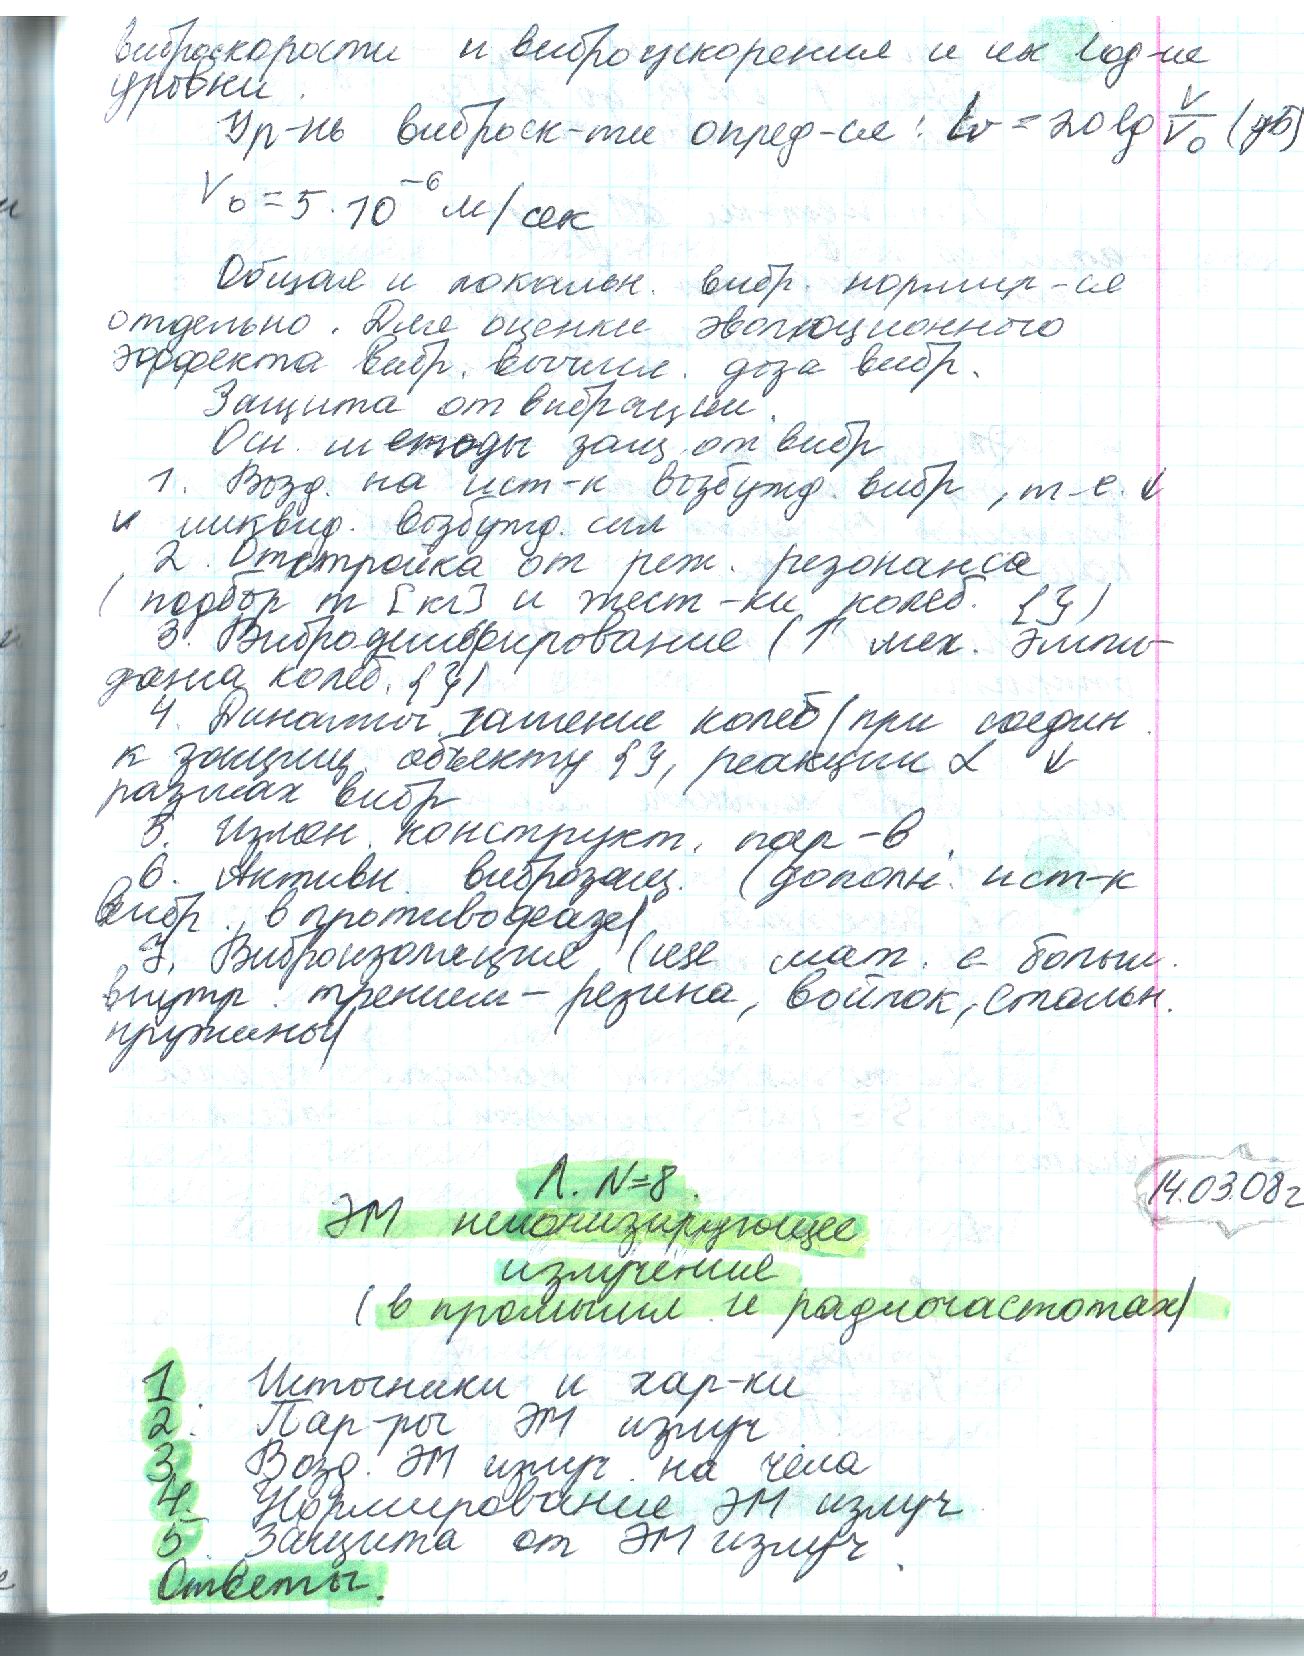 виброскорости и виброускорения и их log-ие
уровни.
Ур-нь виброск-ти опред-ся: Lv = 20 lg V/V₀ (дБ)
V₀ = 5·10⁻⁶ м/сек
Общая и локальн. вибр. нормир-ся
отдельно. Для оценки эволюционного
эффекта вибр. вычисл. доза вибр.
Защита от вибрации.
Осн. методы защ. от вибр
1. Возд. на ист-к возбужд. вибр, т-е. ↓
и ликвид. возбужд. сил
2. Отстройка от реж. резонанса
(подбор m [кг] и жест-ки колеб. {})
3. Вибродемпфирование (↑ мех. эмпи-
данса колеб. {})
4. Динамич. гашение колеб (при соедин.
к защищ. объекту {}, реакции ↓
размах вибр
5. Измен. конструкт. пар-в.
6. Активн. виброзащ. (дополн. ист-к
вибр. в противофазе)
7. Виброизоляция (исе мат. с больш.
внутр. трением - резина, войлок, стальн.
пружины)
Л. N=8.
14.03.08г
ЭМ неионизирующее
излучение
(в промышл. и радиочастотах)
1. Источники и хар-ки
2. Пар-ры ЭМ излуч.
3. Возд. ЭМ излуч. на чела
4. Нормирование ЭМ излуч
5. Защита от ЭМ излуч.
Ответы.